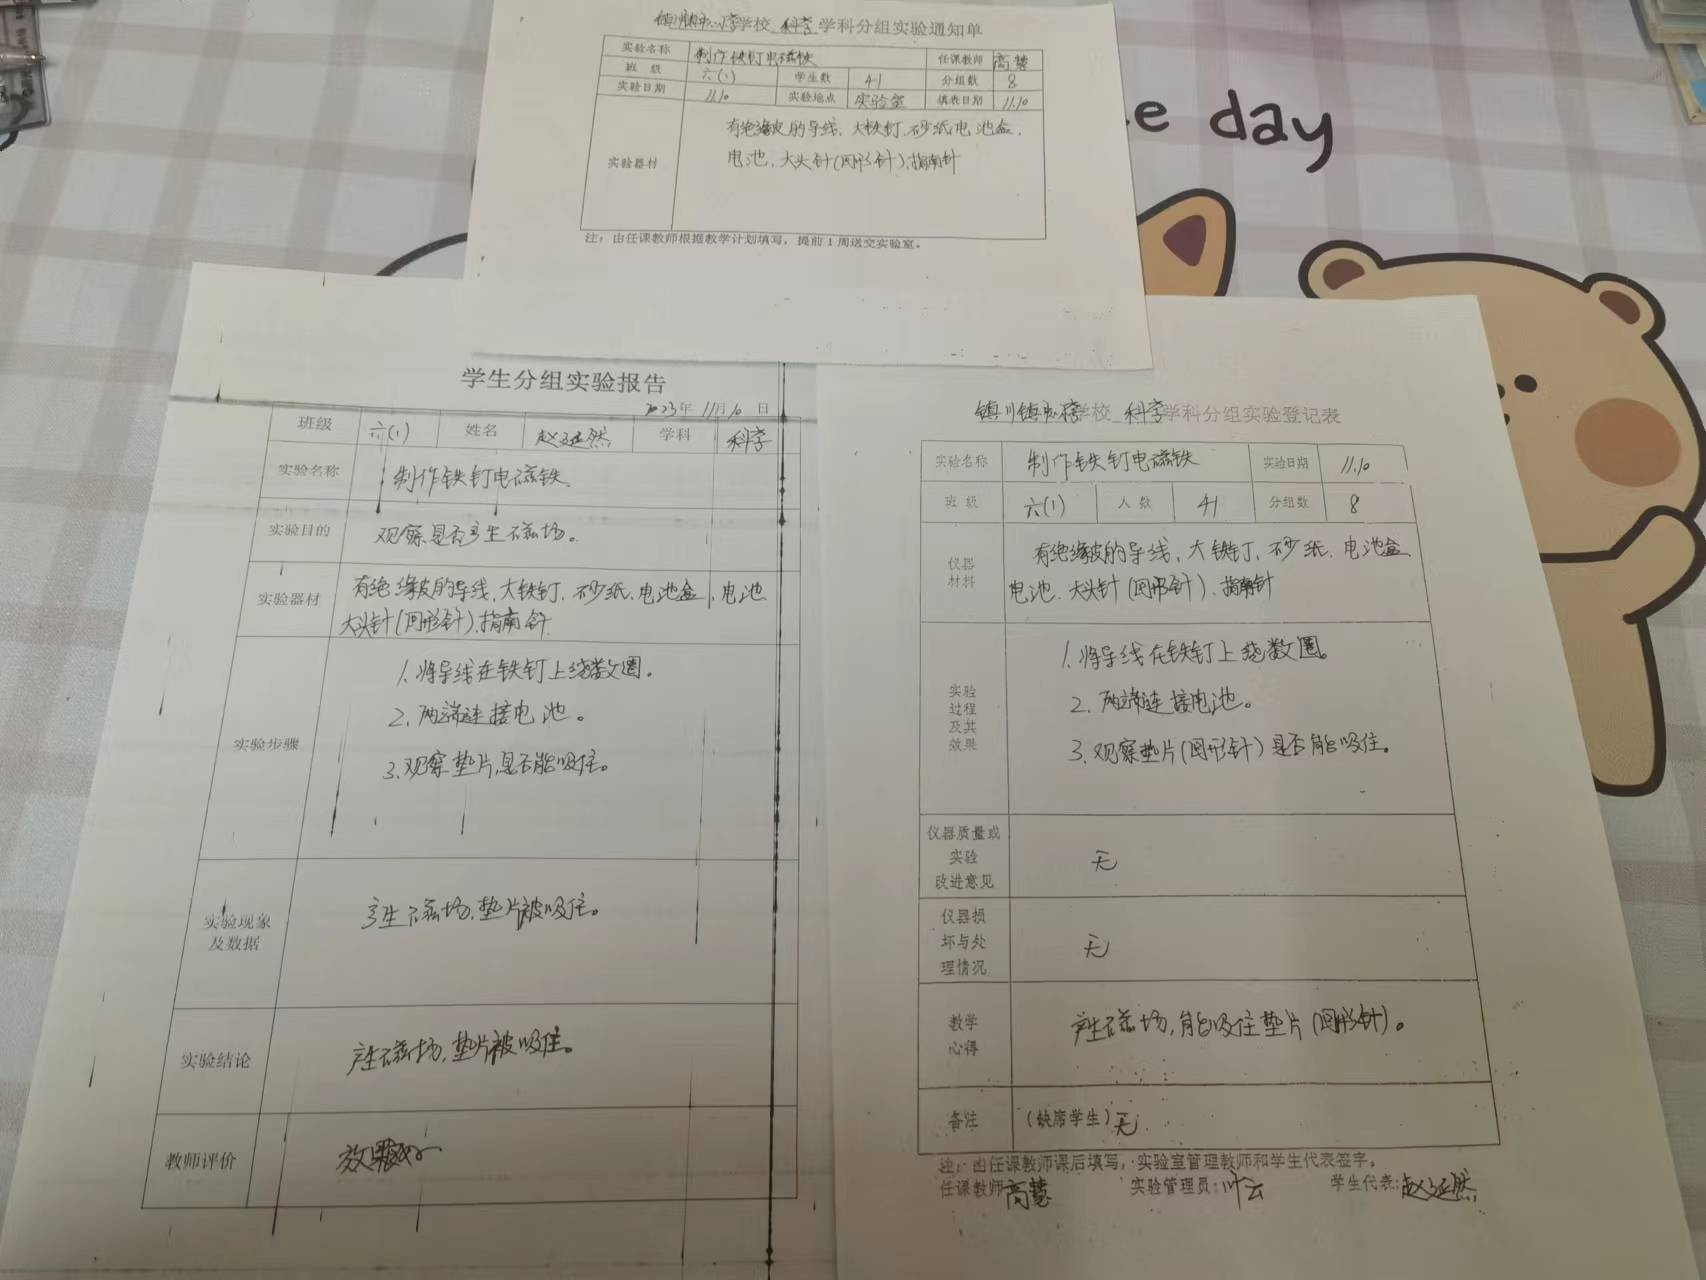 镇川镇中心小学学校 科学 学科分组实验通知单
实验名称 制作铁钉电磁铁 任课教师 高慧
班 级 六(1) 学生数 41 分组数 8
实验日期 11.10 实验地点 实验室 填表日期 11.10
实验器材
有绝缘皮的导线、大铁钉、砂纸、电池盒、
电池、大头针(回形针)、指南针
注：由任课教师根据教学计划填写，提前1周送交实验室。
e day
学生分组实验报告
2023年 11月 10 日
班级 六(1) 姓名 赵延然 学科 科学
实验名称 制作铁钉电磁铁.
实验目的 观察是否产生磁场。
实验器材
有绝缘皮的导线、大铁钉、砂纸、电池盒、电池、
大头针(回形针)、指南针
实验步骤
1.将导线在铁钉上绕数圈。
2.两端连接电池。
3.观察垫片是否能吸住。
实验现象
及数据
产生磁场,垫片被吸住。
实验结论 产生磁场,垫片被吸住。
教师评价
镇川镇中心小学学校 科学 学科分组实验登记表
实验名称 制作铁钉电磁铁 实验日期 11.10
班 级 六(1) 人 数 41 分组数 8
仪器
材料
有绝缘皮的导线、大铁钉、砂纸、电池盒
电池、大头针(回形针)、指南针
实验
过程
及其
效果
1.将导线在铁钉上绕数圈。
2.两端连接电池。
3.观察垫片(回形针)是否能吸住。
仪器质量或
实验
改进意见
无
仪器损
坏与处
理情况
无
教学
心得
产生磁场,能吸住垫片(回形针)。
备注 (缺席学生) 无.
注：由任课教师课后填写，实验室管理教师和学生代表签字。
任课教师 高慧 实验管理员: 叶云 学生代表: 赵延然